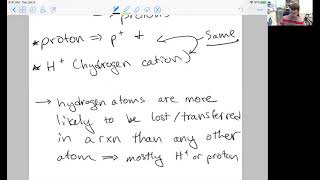 - protons
* proton ⇒ p⁺ &
same
* H⁺ (hydrogen cation)
→ hydrogen atoms are more
likely to be lost/transferred
in a rxn than any other
atom ⇒ mostly H⁺ or proton